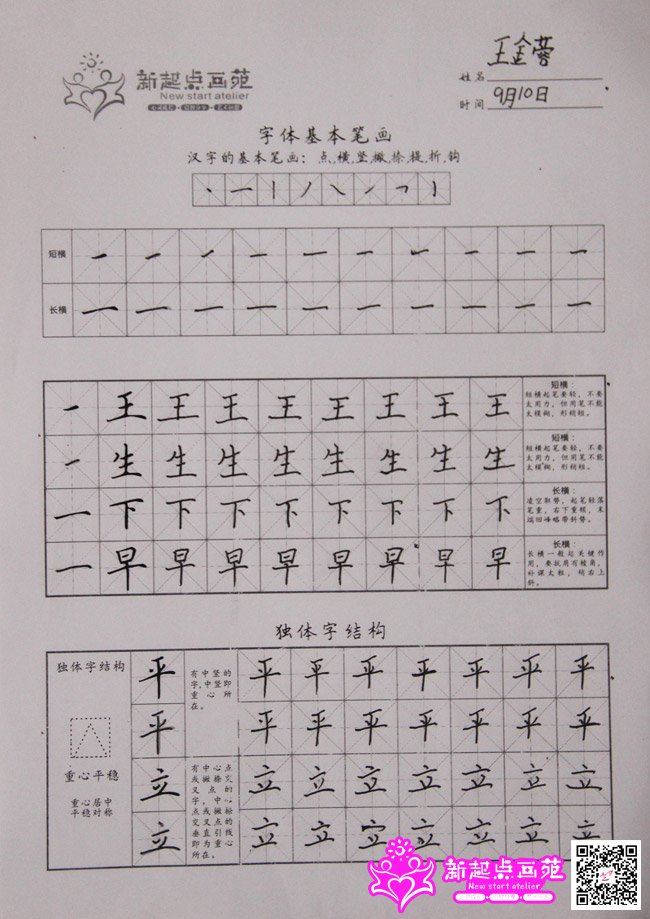 新起点画苑
New start atelier
姓名 王金蓉
时间 9月10日
字体基本笔画
汉字的基本笔画：点,横,竖,撇,捺,提,折,钩
短横 一 一 一 一 一 一 一 一 一 一
长横 一 一 一 一 一 一 一 一 一 一
一 王 王 王 王 王 王 王 王
短横：
短横起笔要轻，不要
太用力，但用笔不能
太模糊，形稍短。
一 生 生 生 生 生 生 生 生
短横：
短横起笔要轻，不要
太用力，但用笔不能
太模糊，形稍短。
一 下 下 下 下 下 下 下 下
长横：
凌空取势，起笔轻落
笔重，右下重顿，末
端回峰略带斜势。
一 早 早 早 早 早 早 早 早
长横：
长横一般起关键作
用，要执肩有棱角，
朴课太粗，稍右上
斜。
独体字结构
独体字结构
重心平稳
重心居中
平稳对称
平 平 平 平 平 平 平 平
有中竖的
字，中竖即
重心所
在。
平 平 平 平 平 平 平 平
立 立 立 立 立 立 立 立
有中心点
或撇捺交
叉点的
字，中心
点或撇捺
交叉点的
垂直引线
即为重心
所在。
立 立 立 立 立 立 立 立
新起点画苑
New start atelier